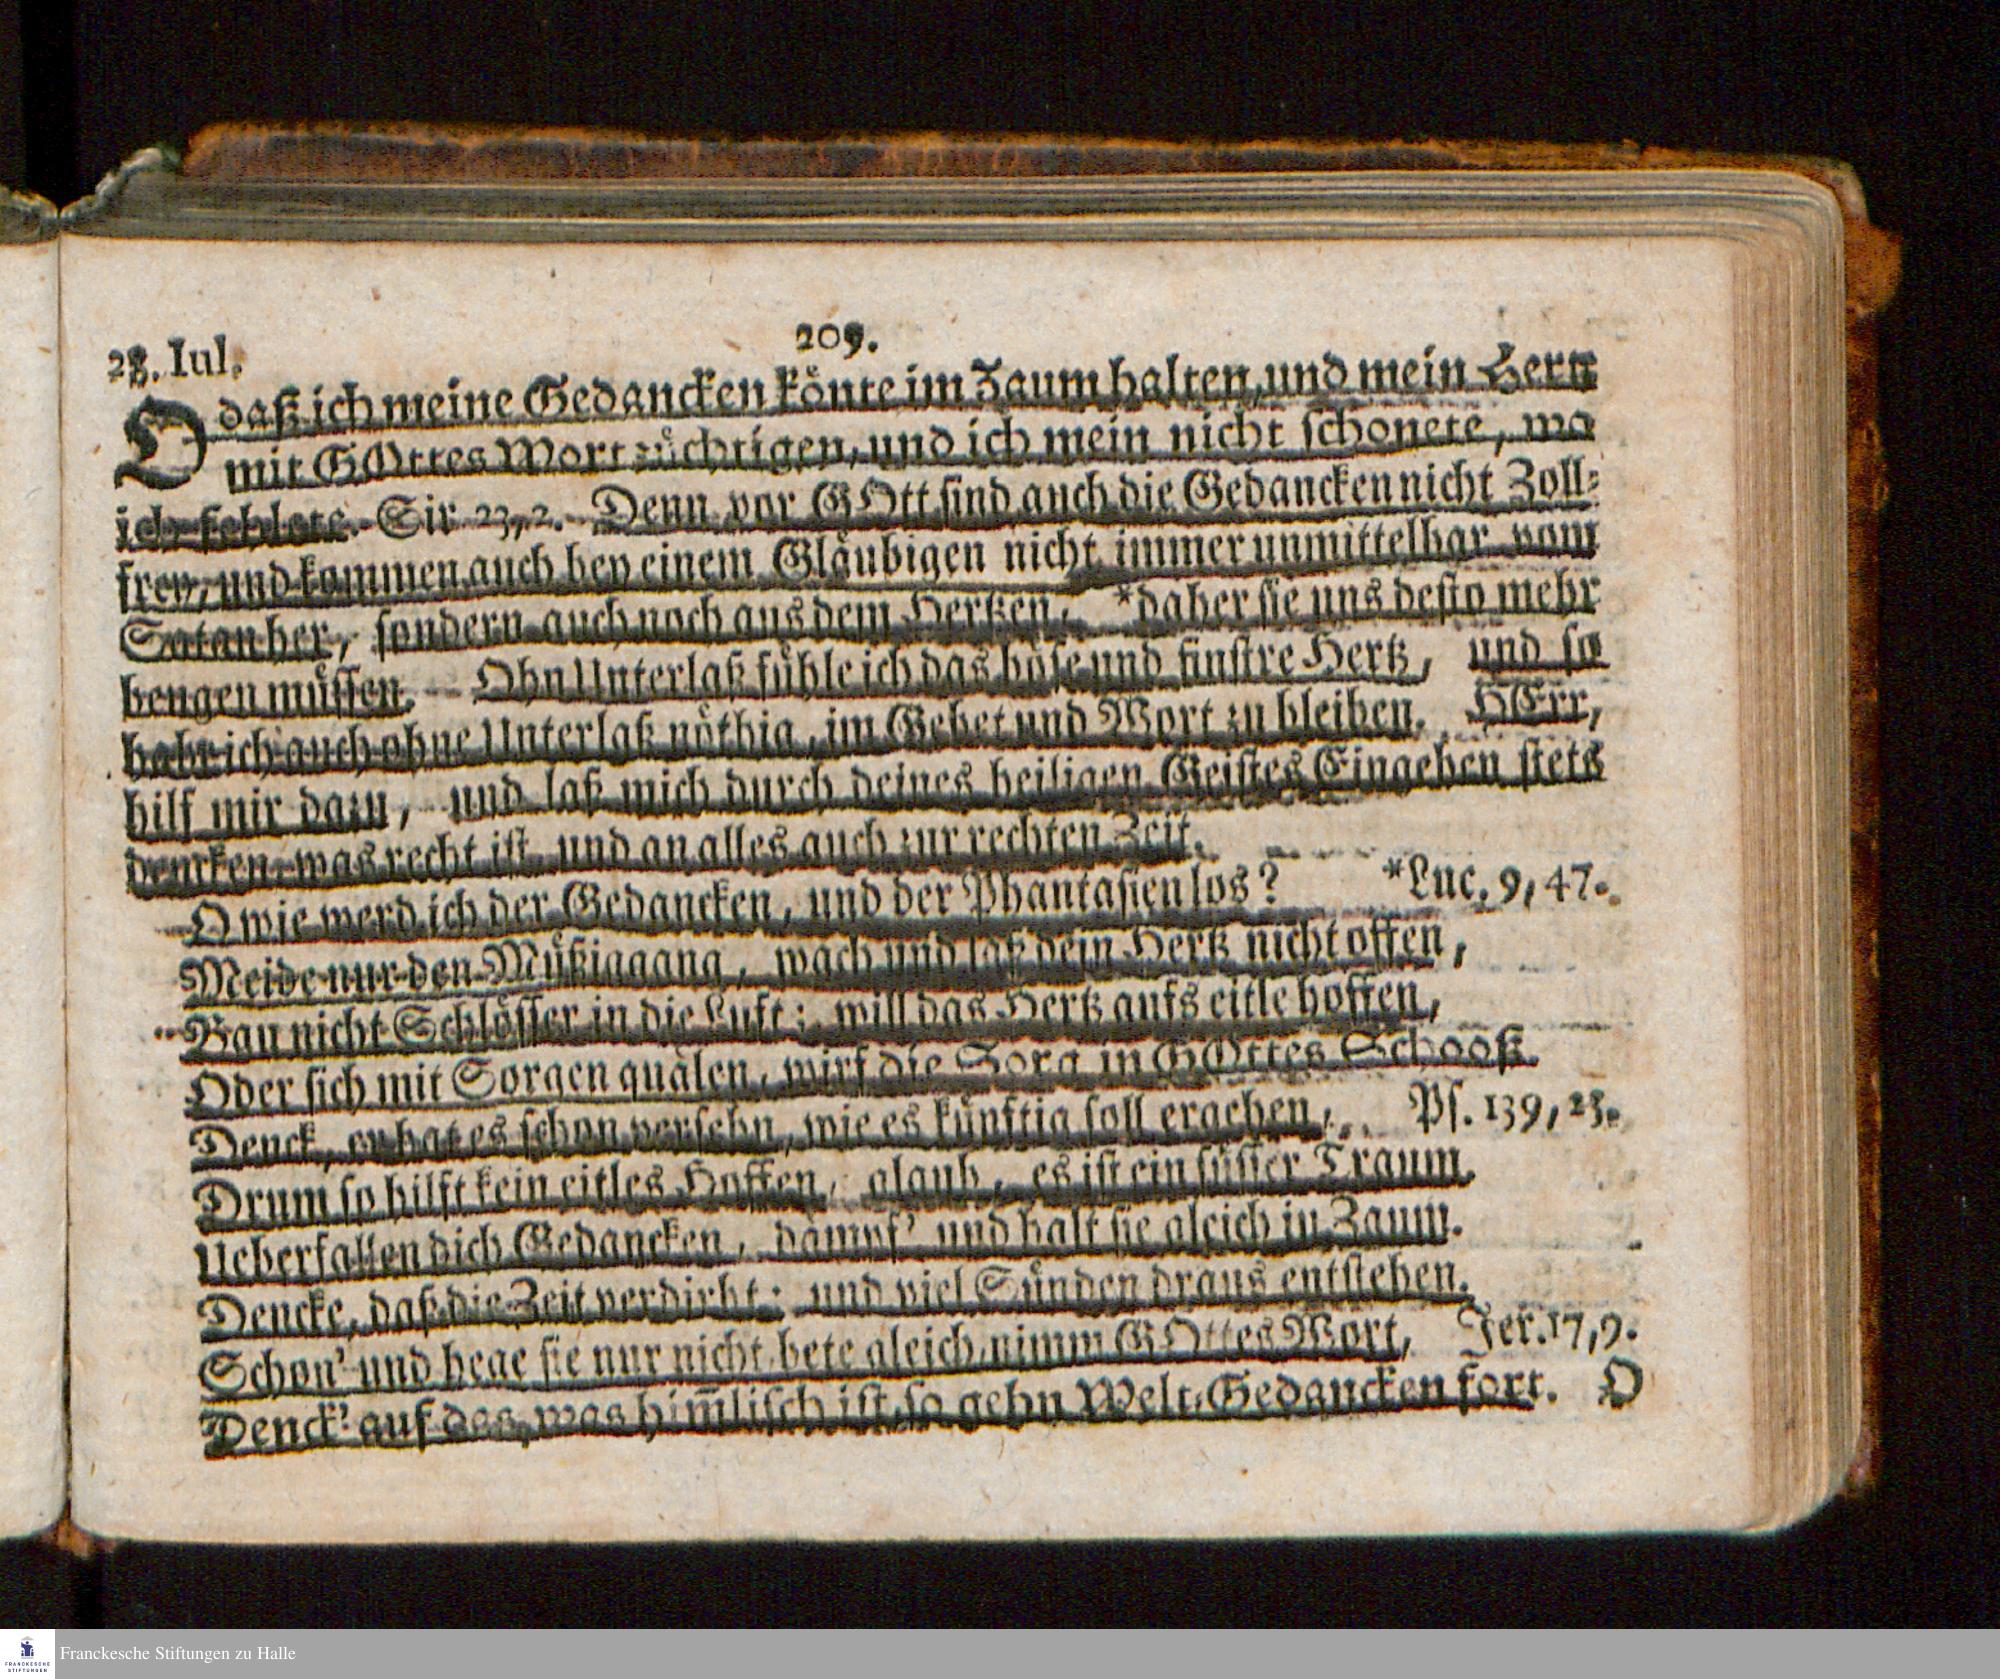 28. Iul.
209.
O daß ich meine Gedancken könte im Zaum halten, und mein Hertz
mit GOttes Wort züchtigen, und ich mein nicht schonete, wo
ich fehlete. Sir 23, 2. Denn vor GOtt sind auch die Gedancken nicht Zoll-
frey, und kommen auch bey einem Gläubigen nicht immer unmittelbar vom
Satan her, sondern auch noch aus dem Hertzen, *daher sie uns desto mehr
beugen müssen. Ohn Unterlaß fühle ich das böse und finstre Hertz, und so
habe ich auch ohne Unterlaß nöthig, im Gebet und Wort zu bleiben. HErr,
hilf mir dazu, und laß mich durch deines heiligen Geistes Eingeben stets
dencken, was recht ist, und an alles auch zur rechten Zeit.
O wie werd ich der Gedancken, und der Phantasien los? *Luc. 9, 47.
Meide nur den Müßiggang, wach und laß dein Hertz nicht offen,
Bau nicht Schlösser in die Luft; will das Hertz aufs eitle hoffen,
Oder sich mit Sorgen quälen, wirf die Sorg in GOttes Schooß.
Denck, er hat es schon versehn, wie es künftig soll ergehen, Ps. 139, 23.
Drum so hilft kein eitles Hoffen, glaub, es ist ein süsser Traum.
Ueberfallen dich Gedancken, dämpf' und halt sie gleich in Zaum.
Dencke, daß die Zeit verdirbt; und viel Sünden draus entstehen.
Schon' und hege sie nur nicht, bete gleich, nimm GOttes Wort, Jer. 17, 9.
Denck' auf das, was him̄lisch ist, so gehn Welt-Gedancken fort. O
FRANCKESCHE
STIFTUNGEN
Franckesche Stiftungen zu Halle